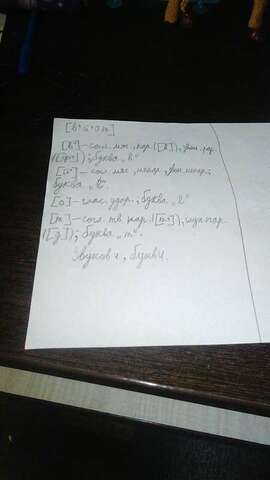 [в' й' о т]
[в'] – согл. мяг., пар. ([в]), звон. пар.
([ф']); буква „в"
[й'] – согл. мяг., непар., звон. непар.;
буква „ё"
[о] – глас. удар.; буква „ё"
[т] – согл. тв. пар. ([т']), глух. пар.
([д]); буква „т".
Звуков 4, букв 4.